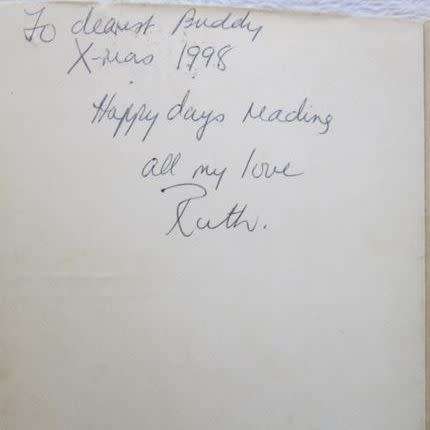 To dearest Buddy
X-mas 1998
Happy days reading
all my love
Ruth.